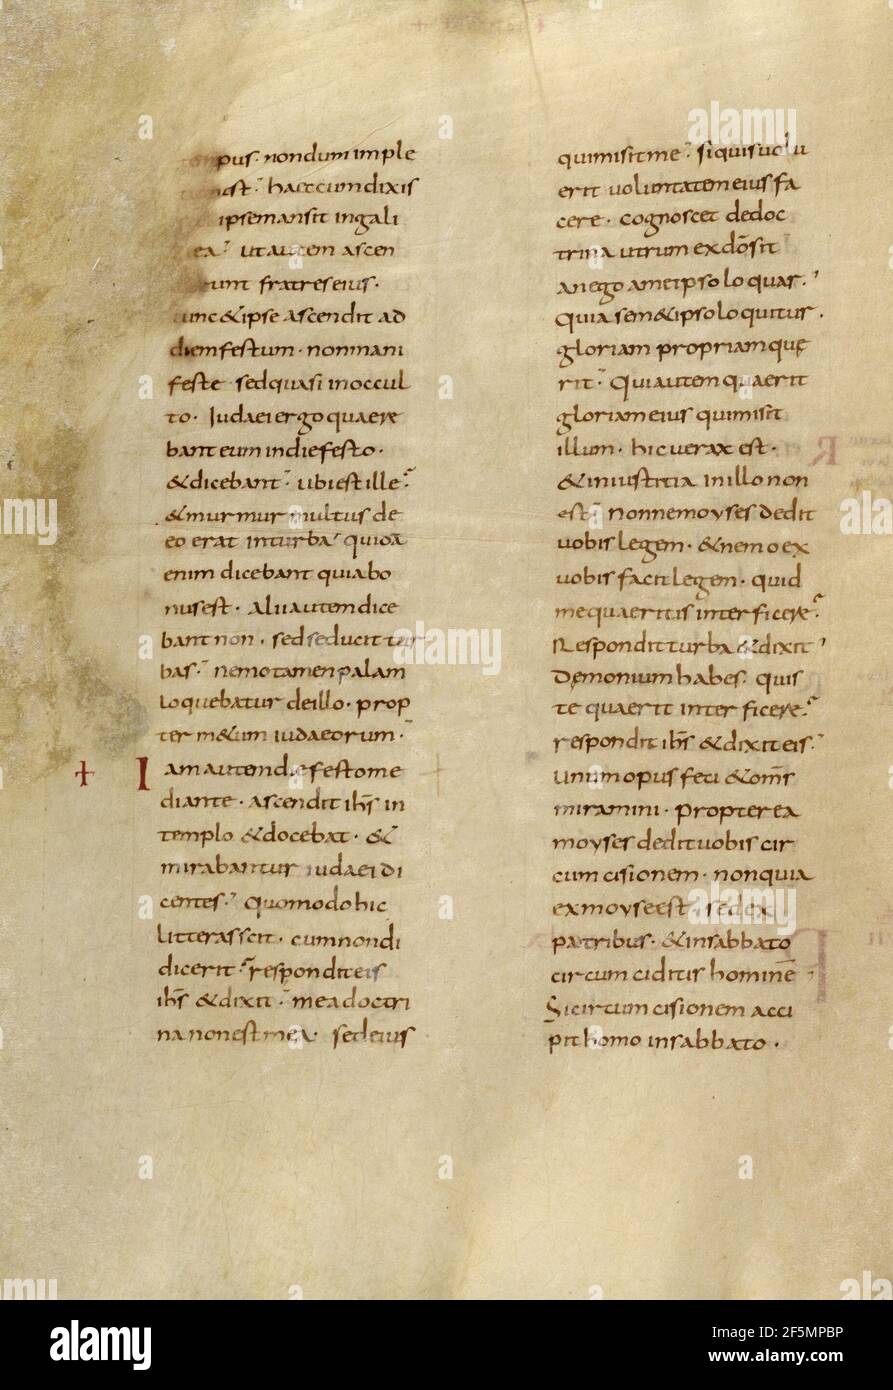 pus· nondum imple
est· haec cum dixis
ipse mansit in gali
ea· ut autem ascen
runt fratres eius·
tunc & ipse ascendit ad
diem festum· non mani
feste sed quasi in occul
to· Iudaei ergo quaere
bant eum in die festo·
& dicebant· ubi est ille?
& murmur multus de
eo erat in turba· quidā
enim dicebant quia bo
nus est· alii autem dice
bant non· sed seducit tur
bas· nemo tamen palam
loquebatur de illo· prop
ter m&um iudaeorum·
+ Iam autem die festo me
diante· ascendit ihs in
templo & docebat· &
mirabantur iudaei di
centes· quomodo hic
litteras scit· cum non di
dicerit· respondit eis
ihs & dixit· mea doctri
na non est mea· sed eius
qui misit me· si quis uolu
erit uoluntatem eius fa
cere· cognoscet de doc
trina utrum ex dō sit
an ego a me ipso loquar·
quia sem&ipso loquitur·
gloriam propriam que
rit· qui autem quaerit
gloriam eius qui misit
illum· hic uerax est·
& iniustitia in illo non
est· nonne moyses dedit
uobis legem· & nemo ex
uobis facit legem· quid
me quaeritis interficere?
Respondit turba & dixit
Demonium habes· quis
te quaerit interficere?
respondit ihs & dixit eis·
unum opus feci & oms
miramini· propterea
moyses dedit uobis cir
cumcisionem· non quia
ex moyse est· sed ex
patribus· & in sabbato
circumciditis hominē
Si circumcisionem acci
pit homo in sabbato·
alamy
Image ID: 2F5MPBP
www.alamy.com